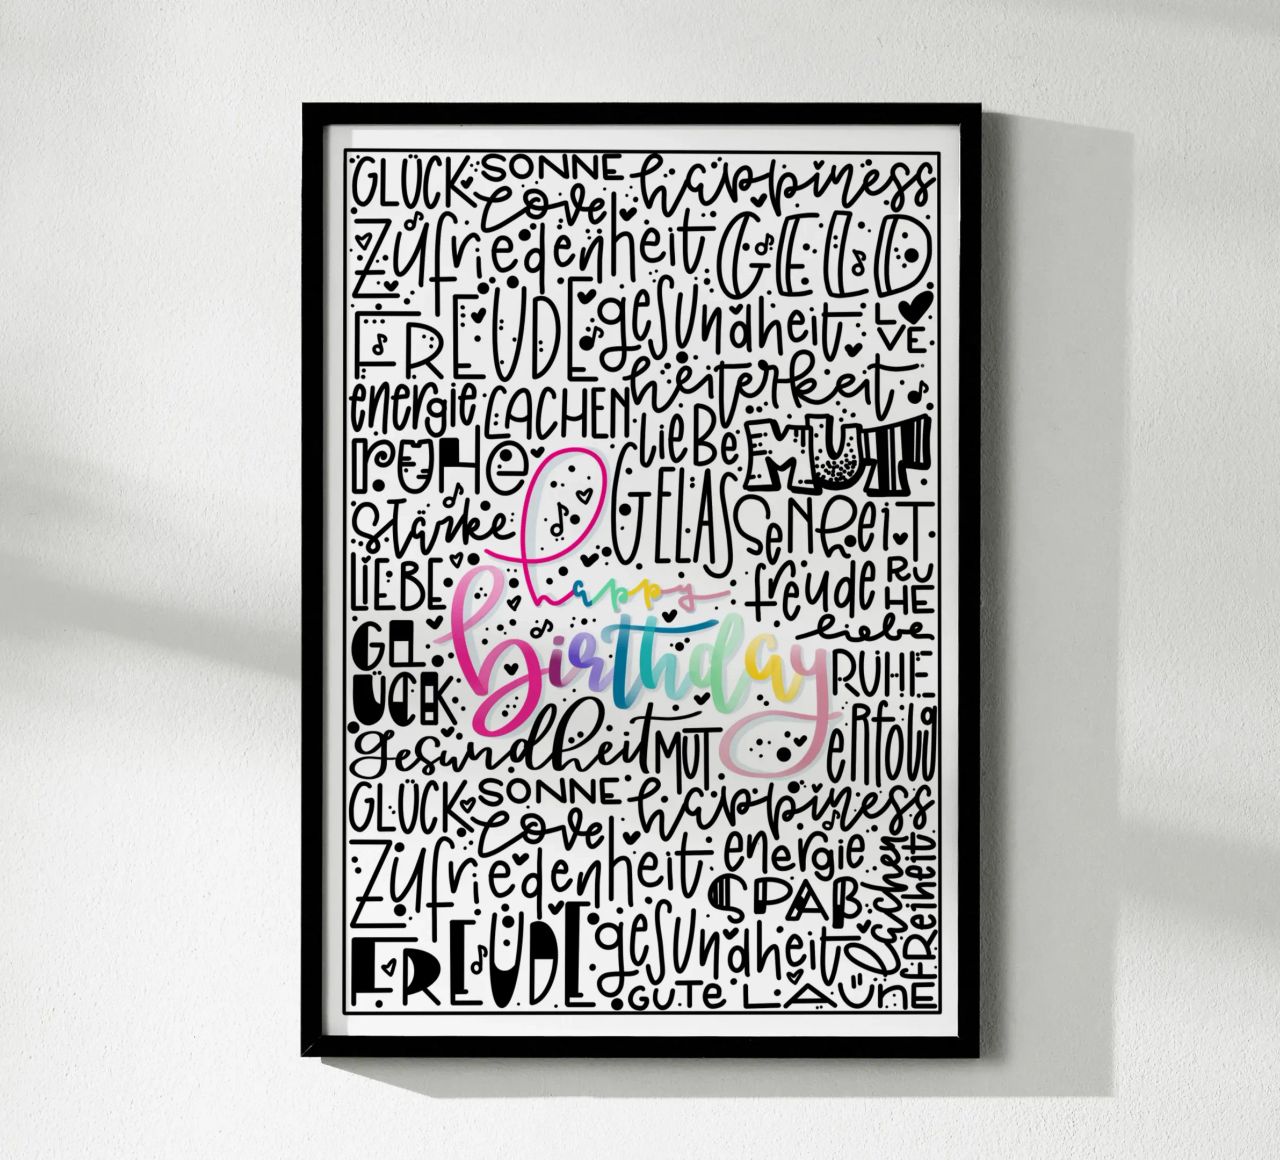 GLÜCK SONNE happiness
love
Zufriedenheit GELD
FREUDE gesundheit LOVE
heiterkeit
energie LACHEN
LieBe MUT
RUHe
GELASSenHeiT
Stärke
LIEBE freude RUHE
happy
liebe
birthday
GLÜCK RUHE
gesundheit MUT erfolg
GLÜCK SONNE happiness
love
Zufriedenheit energie
SPAß lachen
FREUDE gesundheit freiheit
GUTE LAUNE